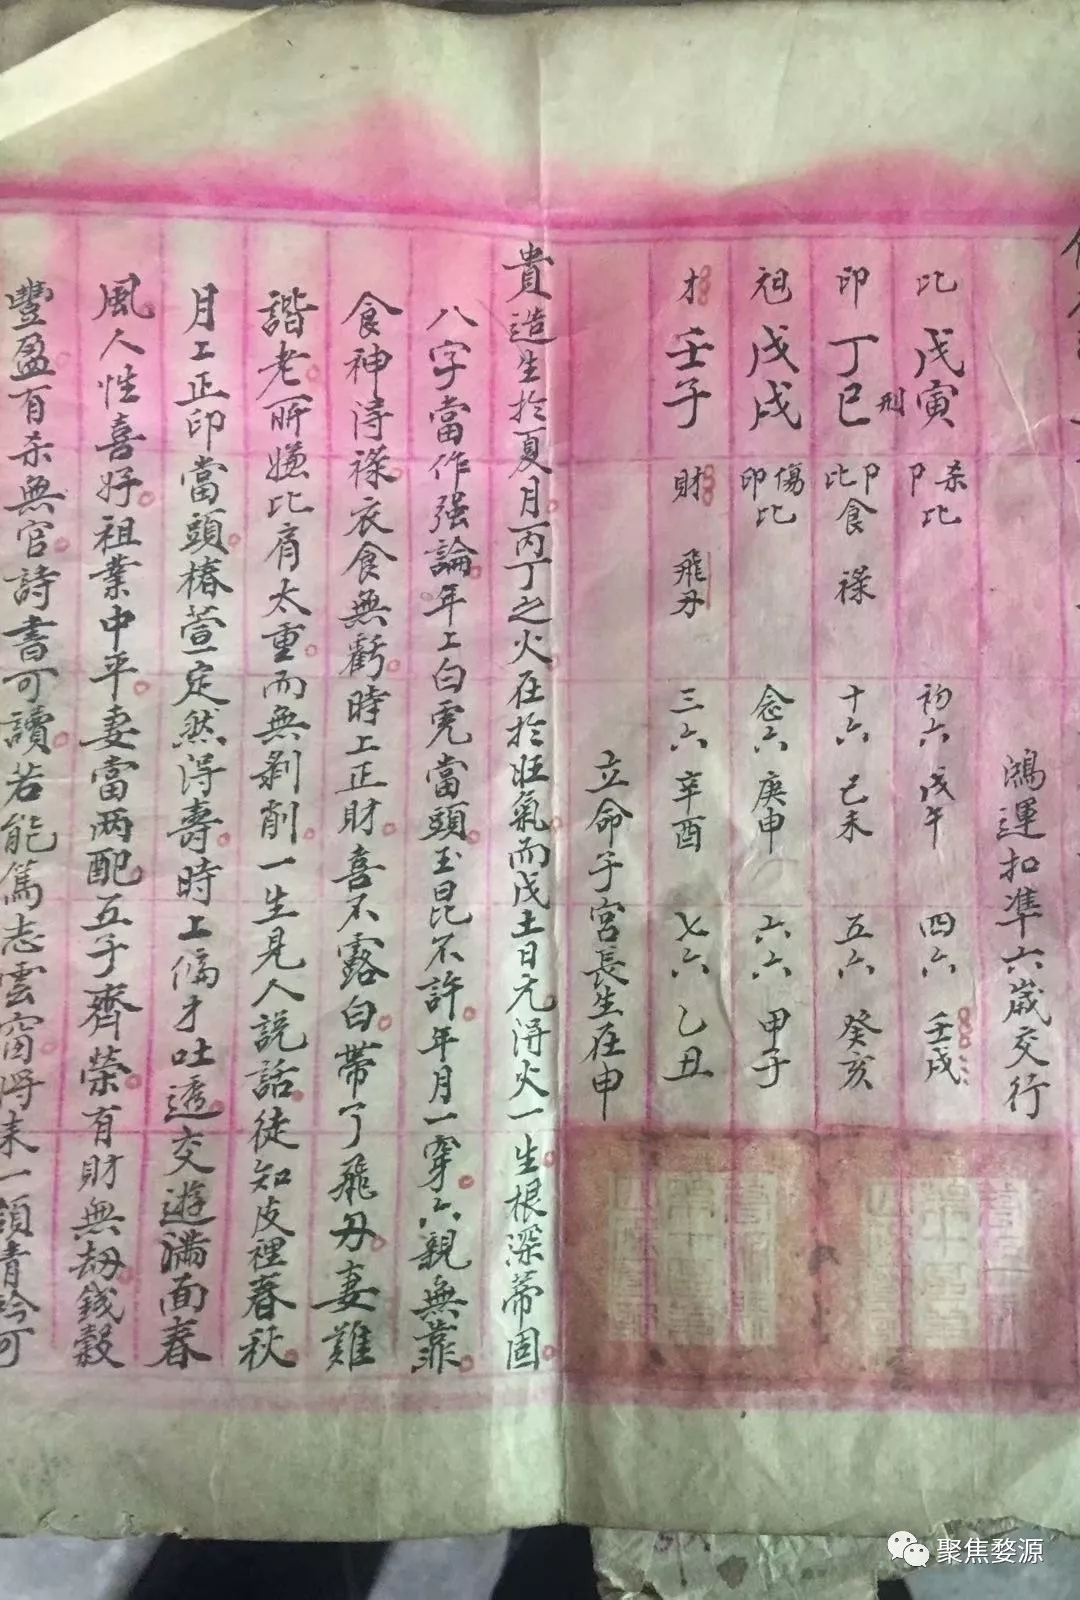 鴻運扣準六歲交行
比 戊寅 杀比卩 初六 戊午 四六 壬戌
刑
印 丁巳 卩食比 祿 十六 己未 五六 癸亥
祖 戊戌 傷比印 念六 庚申 六六 甲子
才 壬子 財 飛刃 三六 辛酉 七六 乙丑
立命子宮長生在申
貴造生於夏月丙丁之火在於旺氣而戊土日元得火一生根深蒂固
八字當作强論年上白虎當頭玉昆不許年月一穿六親無靠
食神得祿衣食無虧時上正財喜不露白帶了飛刃妻難
諧老所嫌比肩太重而無剥削一生見人説話徒知皮裡春秋
月上正印當頭椿萱定然得壽時上偏才吐透交遊满面春
風人性喜好祖業中平妻當两配五子齊榮有財無刼錢穀
豐盈有杀無官詩書可讀若能篤志雲窗将来一領青衿可
聚焦婺源